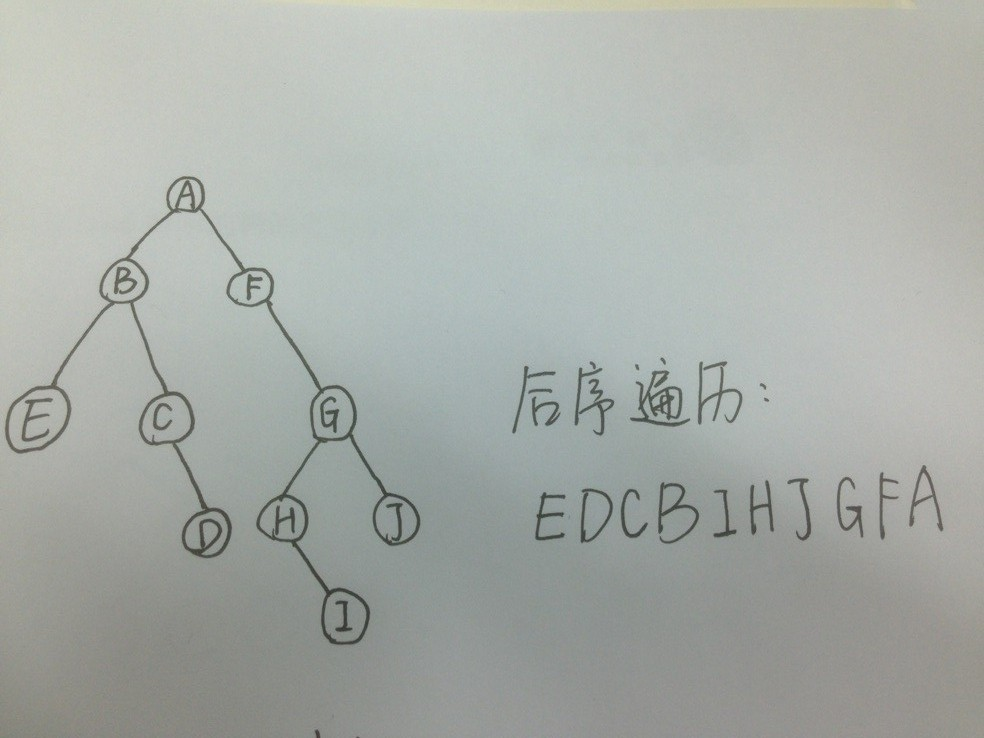 A
B F
E C G
D H J
I
后序遍历:
EDCBIHJGFA